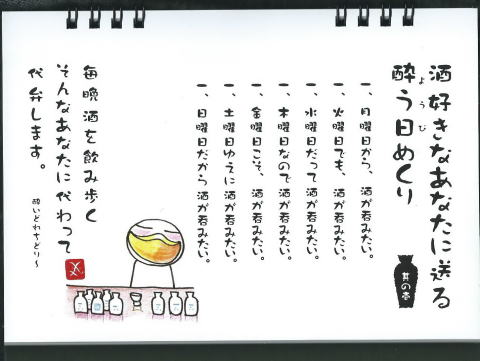 酒好きなあなたに送る
酔う日めくり
ようび
其の壱
一、月曜日から、酒が呑みたい。
一、火曜日でも、酒が呑みたい。
一、水曜日だって酒が呑みたい。
一、木曜日なので酒が呑みたい。
一、金曜日こそ、酒が呑みたい。
一、土曜日ゆえに酒が呑みたい。
一、日曜日だから酒が呑みたい。
毎晩酒を飲み歩く
そんなあなたに代わって
代弁します。
酔いどれさとり〜